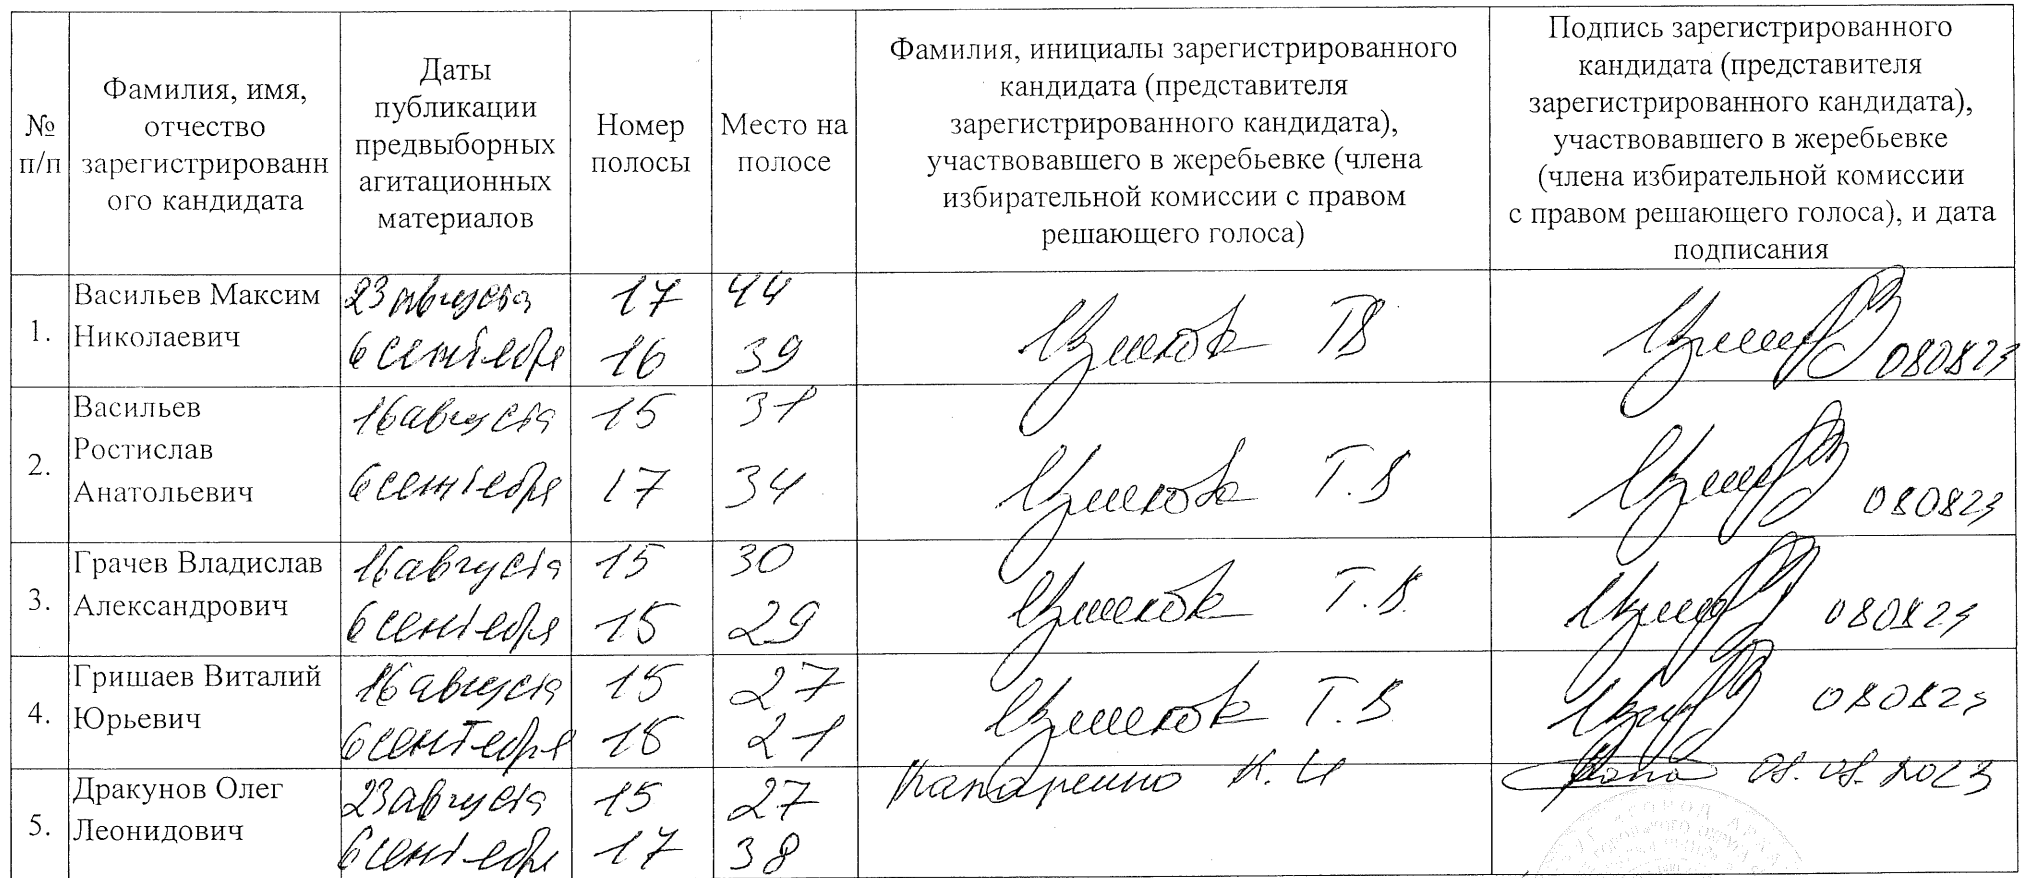 №
п/п
Фамилия, имя,
отчество
зарегистрированн
ого кандидата
Даты
публикации
предвыборных
агитационных
материалов
Номер
полосы
Место на
полосе
Фамилия, инициалы зарегистрированного
кандидата (представителя
зарегистрированного кандидата),
участвовавшего в жеребьевке (члена
избирательной комиссии с правом
решающего голоса)
Подпись зарегистрированного
кандидата (представителя
зарегистрированного кандидата),
участвовавшего в жеребьевке
(члена избирательной комиссии
с правом решающего голоса), и дата
подписания
1.
Васильев Максим
Николаевич
23 августа 17 44
6 сентября 16 39
Т В
080823
2.
Васильев
Ростислав
Анатольевич
16 августа 15 31
6 сентября 17 34
Т. В
080823
3.
Грачев Владислав
Александрович
16 августа 15 30
6 сентября 15 29
Т. В.
080823
4.
Гришаев Виталий
Юрьевич
16 августа 15 27
6 сентября 21
Т. В
080823
5.
Дракунов Олег
Леонидович
23 августа 15 27
6 сентября 17 38
К. И
08.08.2023